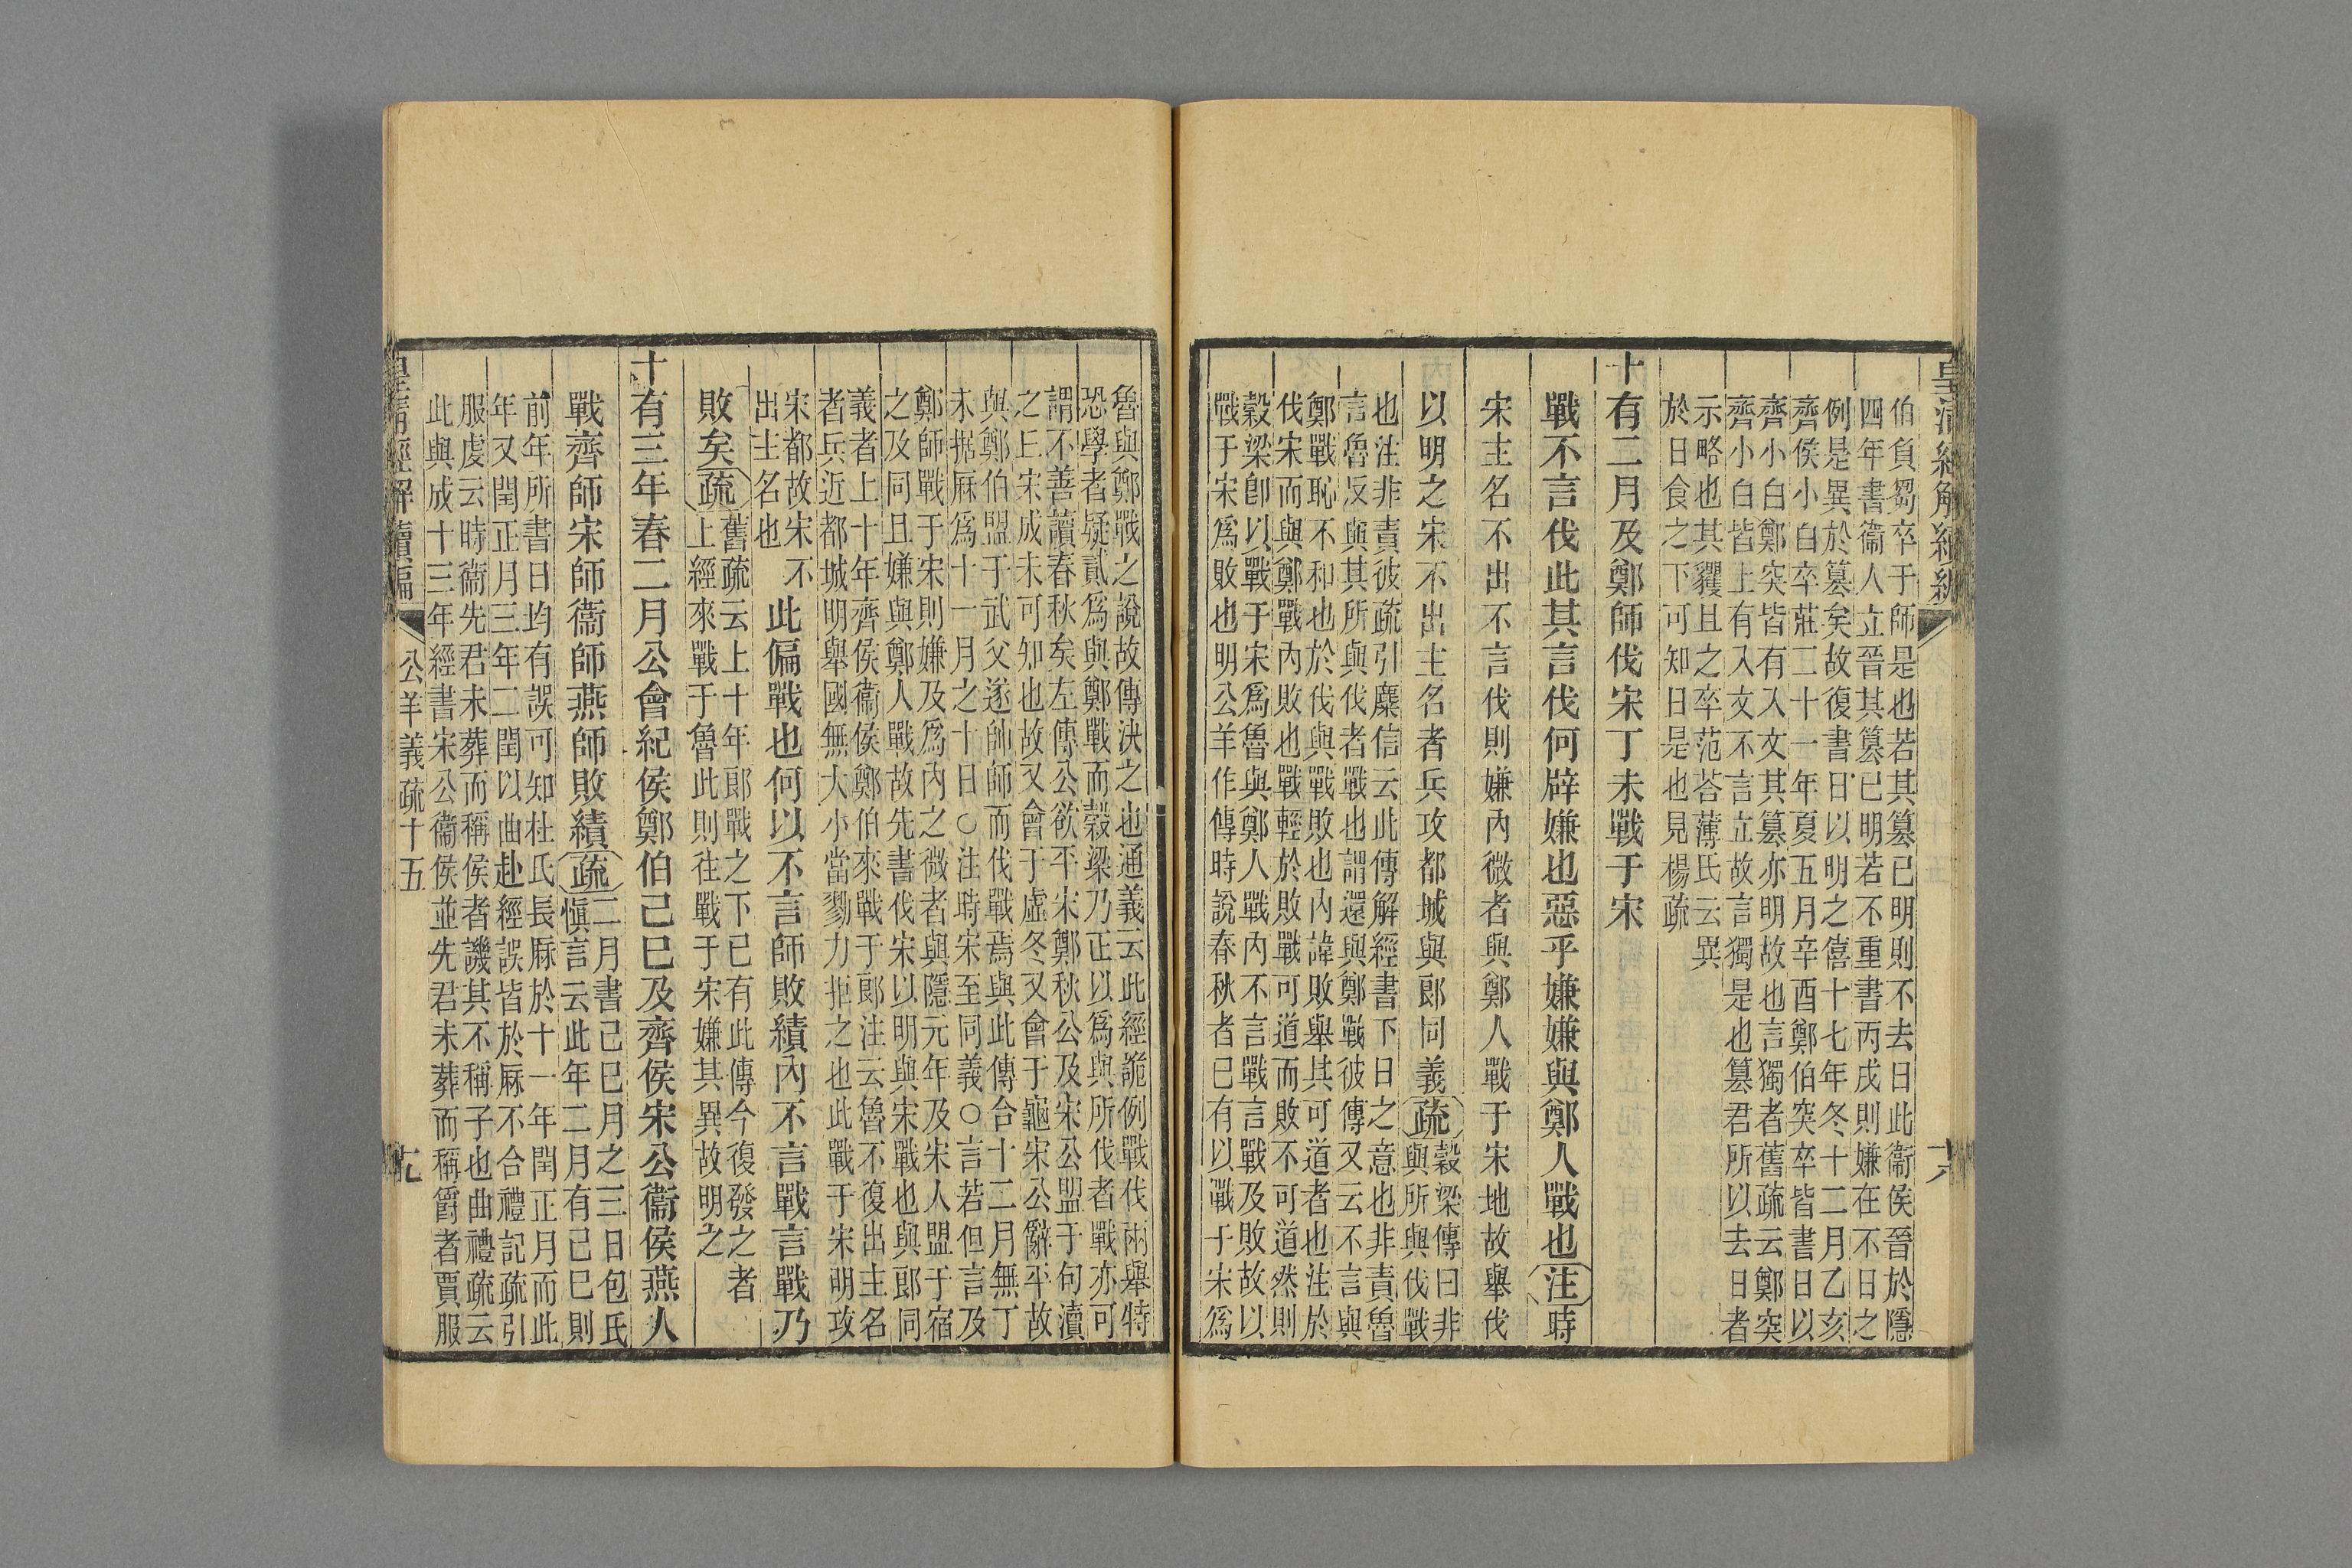 伯負芻卒于師是也若其篡已明則不去日此衞侯晉於隱
四年書衞人立晉其篡已明若不重書丙戌則嫌在不日之
例是異於篡矣故復書日以明之僖十七年冬十二月乙亥
齊侯小白卒莊二十一年夏五月辛酉鄭伯突卒皆書日以
齊小白鄭突皆有入文其篡亦明故也言獨者舊疏云鄭突
齊小白皆上有入文不言立故言獨是也篡君所以去日者
示略也其貜且之卒范荅薄氏云異
於日食之下可知日是也見楊疏
十有二月及鄭師伐宋丁未戰于宋
戰不言伐此其言伐何辟嫌也惡乎嫌嫌與鄭人戰也注時
宋主名不出不言伐則嫌內微者與鄭人戰于宋地故舉伐
以明之宋不出主名者兵攻都城與郎同義疏穀梁傳曰非
與所與伐戰
也注非責彼疏引麋信云此傳解經書下日之意也非責魯
言魯反與其所與伐者戰也謂還與鄭戰彼傳又云不言與
鄭戰恥不和也於伐與戰敗也內諱敗舉其可道者也注於
伐宋而與鄭戰內敗也戰輕於敗戰可道而敗不可道然則
穀梁卽以戰于宋爲魯與鄭人戰內不言戰言戰及敗故以
戰于宋爲敗也明公羊作傳時說春秋者已有以戰于宋爲
皇清經解續編
魯與鄭戰之說故傳決之也通義云此經詭例戰伐兩舉特
恐學者疑貳爲與鄭戰而穀梁乃正以爲與所伐者戰亦可
謂不善讀春秋矣左傳公欲平宋鄭秋公及宋公盟于句瀆
之上宋成未可知也故又會于虛冬又會于龜宋公辭平故
與鄭伯盟于武父遂帥師而伐戰焉與此傳合十二月無丁
未据厤爲十一月之十日○注時宋至同義○言若但言及
鄭師戰于宋則嫌及爲內之微者與隱元年及宋人盟于宿
之及同且嫌與鄭人戰故先書伐宋以明與宋戰也與郎同
義者上十年齊侯衞侯鄭伯來戰于郎注云魯不復出主名
者兵近都城明舉國無大小當戮力拒之也此戰于宋明攻
宋都故宋不
出主名也
此偏戰也何以不言師敗績內不言戰言戰乃
敗矣疏舊疏云上十年郎戰之下已有此傳今復發之者
上經來戰于魯此則往戰于宋嫌其異故明之
十有三年春二月公會紀侯鄭伯己巳及齊侯宋公衞侯燕人
戰齊師宋師衞師燕師敗績疏二月書己巳月之三日包氏
愼言云此年二月有己巳則
前年所書日均有誤可知杜氏長厤於十一年閏正月而此
年又閏正月三年二閏以曲赴經誤皆於厤不合禮記疏引
服虔云時衞先君未葬而稱侯者譏其不稱子也曲禮疏云
此與成十三年經書宋公衞侯並先君未葬而稱爵者賈服
皇清經解續編
公羊義疏十五
十九